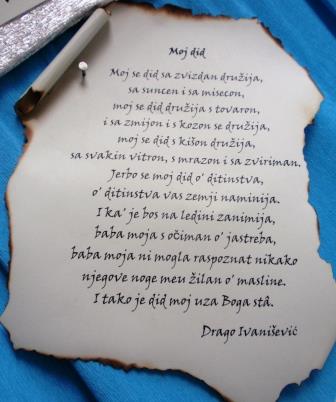 Moj did
Moj se did sa zvizdan družija,
sa suncen i sa misecon,
moj se did družija s tovaron,
i sa zmijon i s kozon se družija,
moj se did s kišon družija,
sa svakin vitron, s mrazon i sa zviriman.
Jerbo se moj did o' ditinstva,
o' ditinstva vas zemji naminija.
I ka' je bos na ledini zanimija,
baba moja s očiman o' jastreba,
baba moja ni mogla raspoznat nikako
njegove noge meu žilan o' masline.
I tako je did moj uza Boga stâ.
Drago Ivanišević